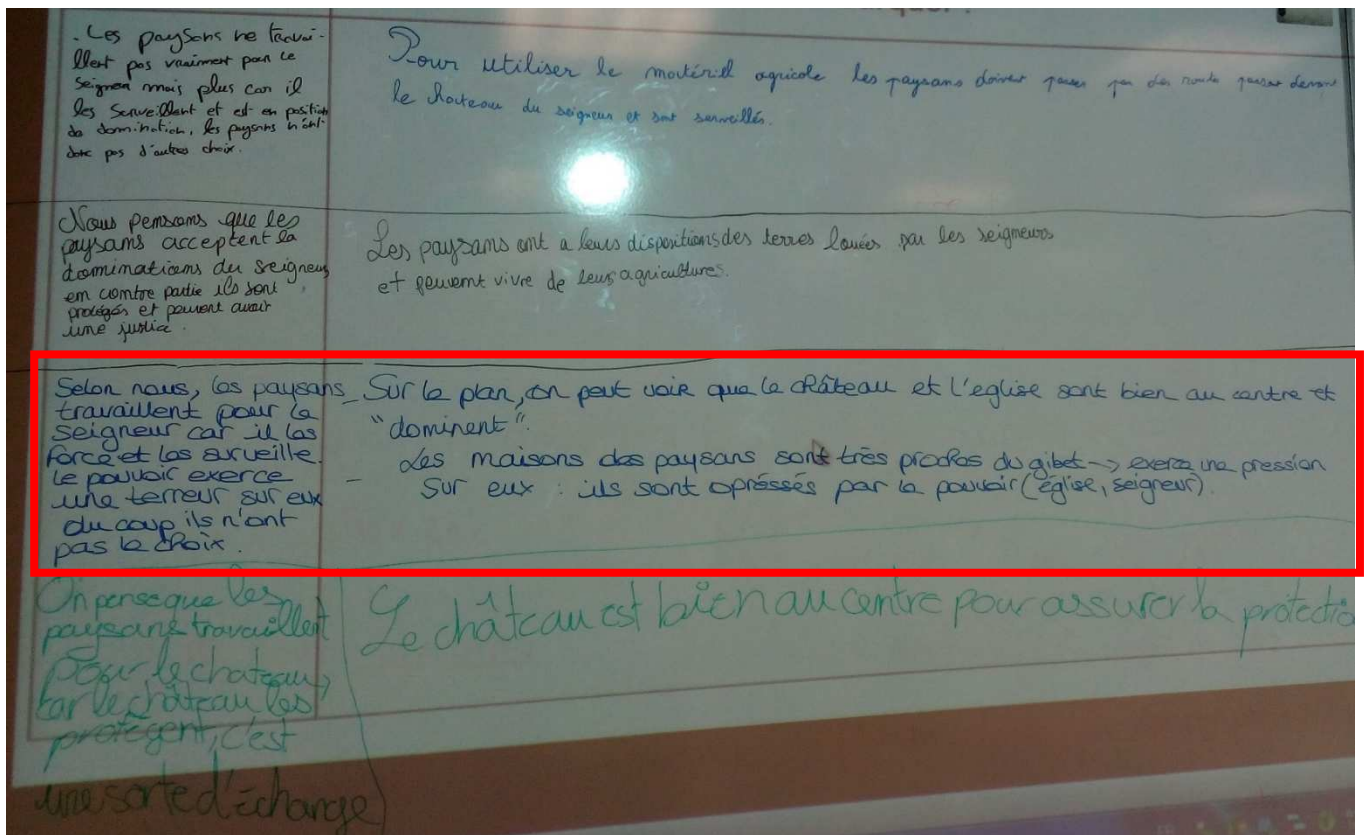 . Les paysans ne travai-
llent pas vraiment pour le
seigneur mais plus car il
les surveillent et est en position
de domination, les paysans n'ont
donc pas d'autres choix.
Pour utiliser le matériel agricole les paysans doivent passer par des route passant devant
le chateau du seigneur et sont surveillés.
Nous pensons que les
paysans acceptent la
dominations du seigneur
en contre partie ils sont
protégés et peuvent avoir
une justice.
Les paysans ont a leurs dispositions des terres louées par les seigneurs
et peuvent vivre de leurs agricultures.
Selon nous, les paysans
travaillent pour le
seigneur car il les
force et les surveille.
Le pouvoir exerce
une terreur sur eux
du coup ils n'ont
pas le choix.
- Sur le plan, on peut voir que le château et l'eglise sont bien au centre et
"dominent".
- Les maisons des paysans sont très proches du gibet -> exerce une pression
sur eux : ils sont opréssés par le pouvoir (église, seigneur).
On pense que les
paysans travaillent
pour le chateau,
car le château les
protègent, c'est
une sorte d'échange
Le château est bien au centre pour assurer la protectio